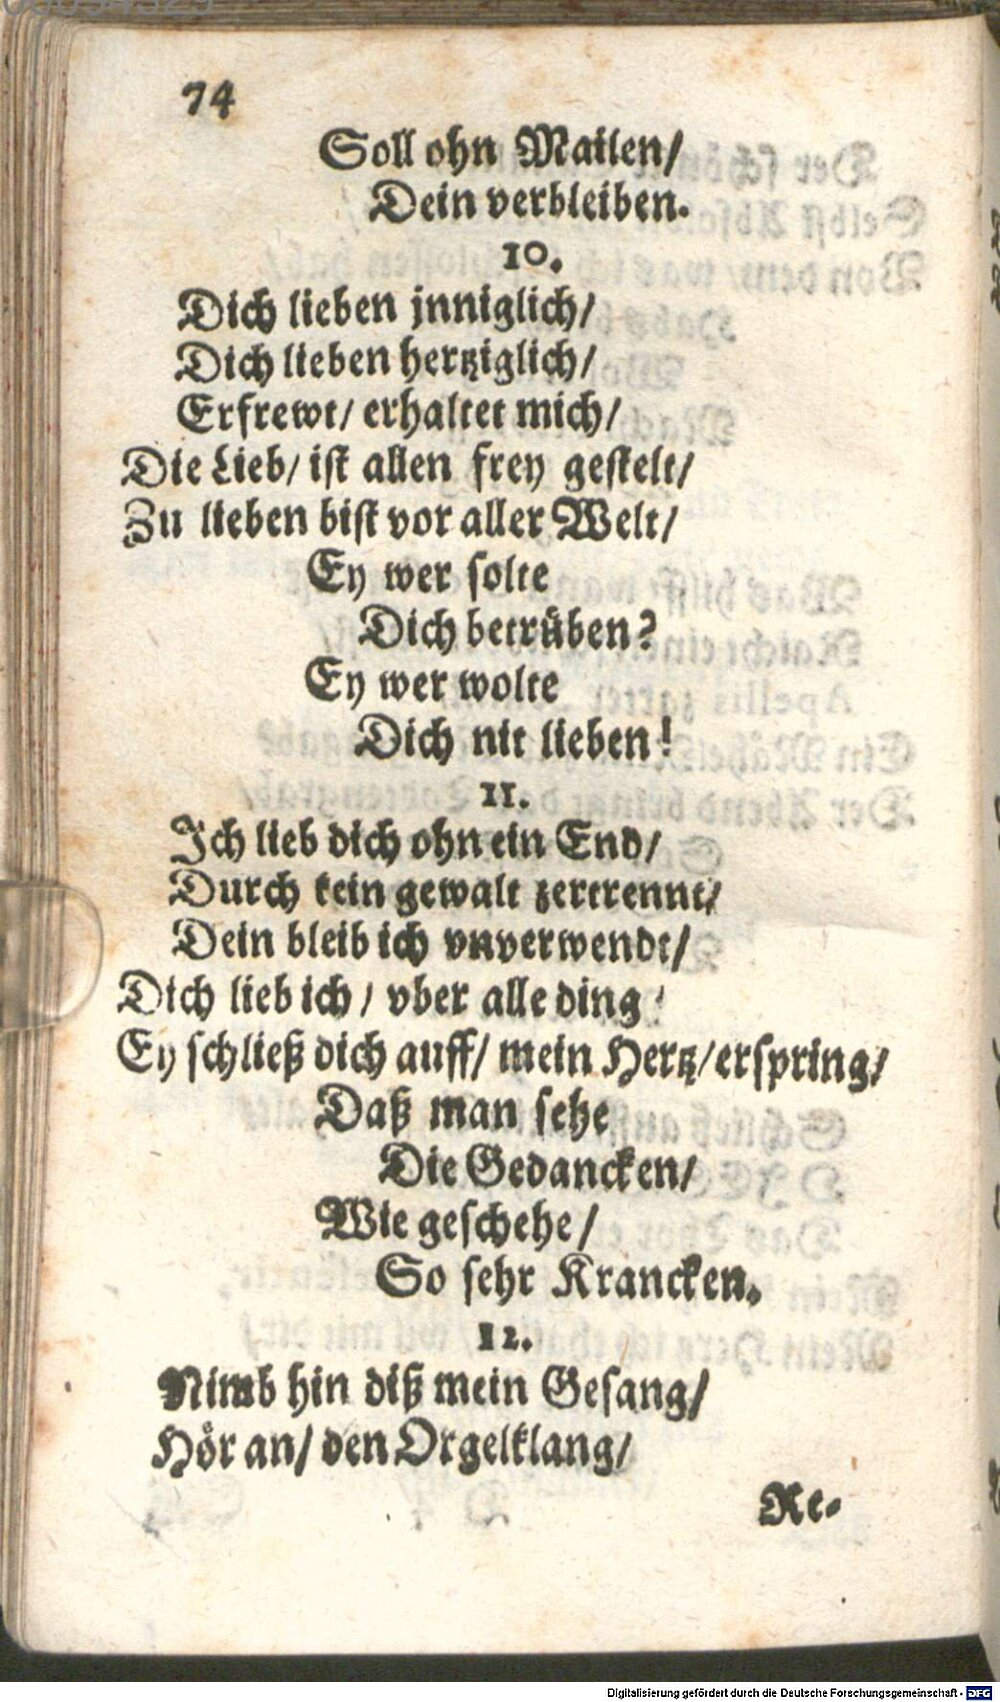 74
Soll ohn Mailen/
Dein verbleiben.
10.
Dich lieben jnniglich/
Dich lieben hertziglich/
Erfrewt/ erhaltet mich/
Die Lieb/ ist allen frey gestelt/
Zu lieben bist vor aller Welt/
Ey wer solte
Dich betrüben?
Ey wer wolte
Dich nit lieben!
11.
Ich lieb dich ohn ein End/
Durch kein gewalt zertrennt/
Dein bleib ich vnverwendt/
Dich lieb ich/ vber alle ding/
Ey schließ dich auff/ mein Hertz/ erspring/
Daß man sehe
Die Gedancken/
Wie geschehe/
So sehr Krancken.
12.
Nimb hin diß mein Gesang/
Hör an/ den Orgelklang/
Re-
Digitalisierung gefördert durch die Deutsche Forschungsgemeinschaft - DFG